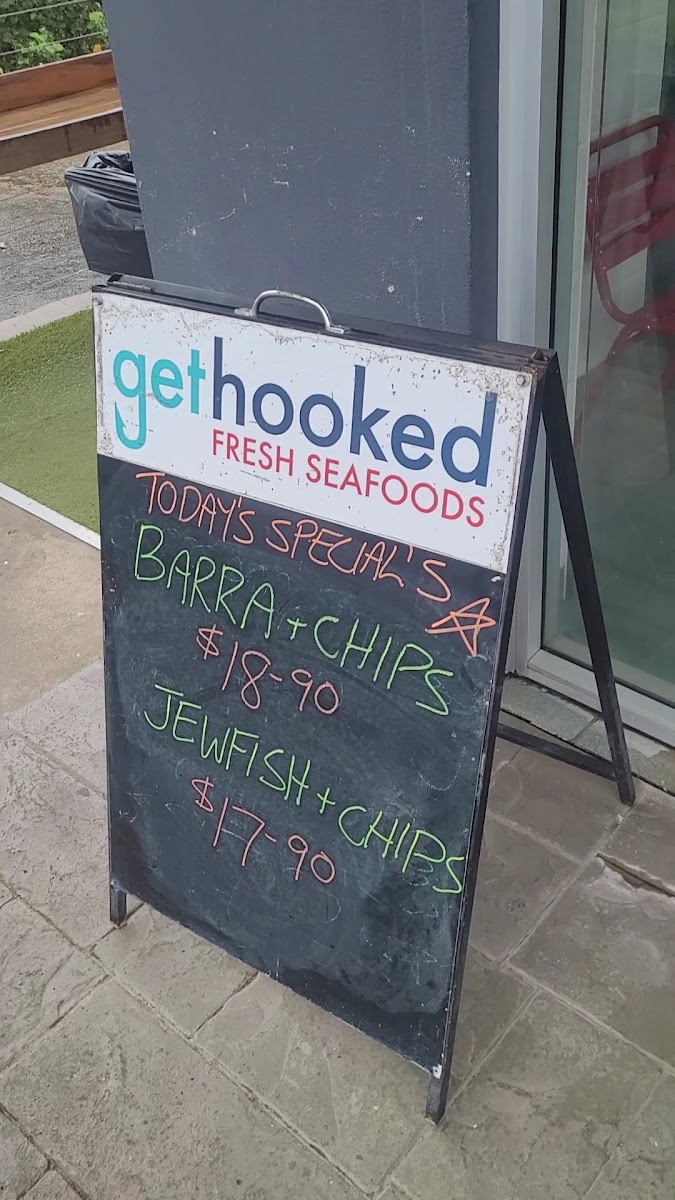 gethooked
FRESH SEAFOODS
TODAY'S SPECIAL'S
BARRA + CHIPS
$18-90
JEWFISH + CHIPS
$17-90